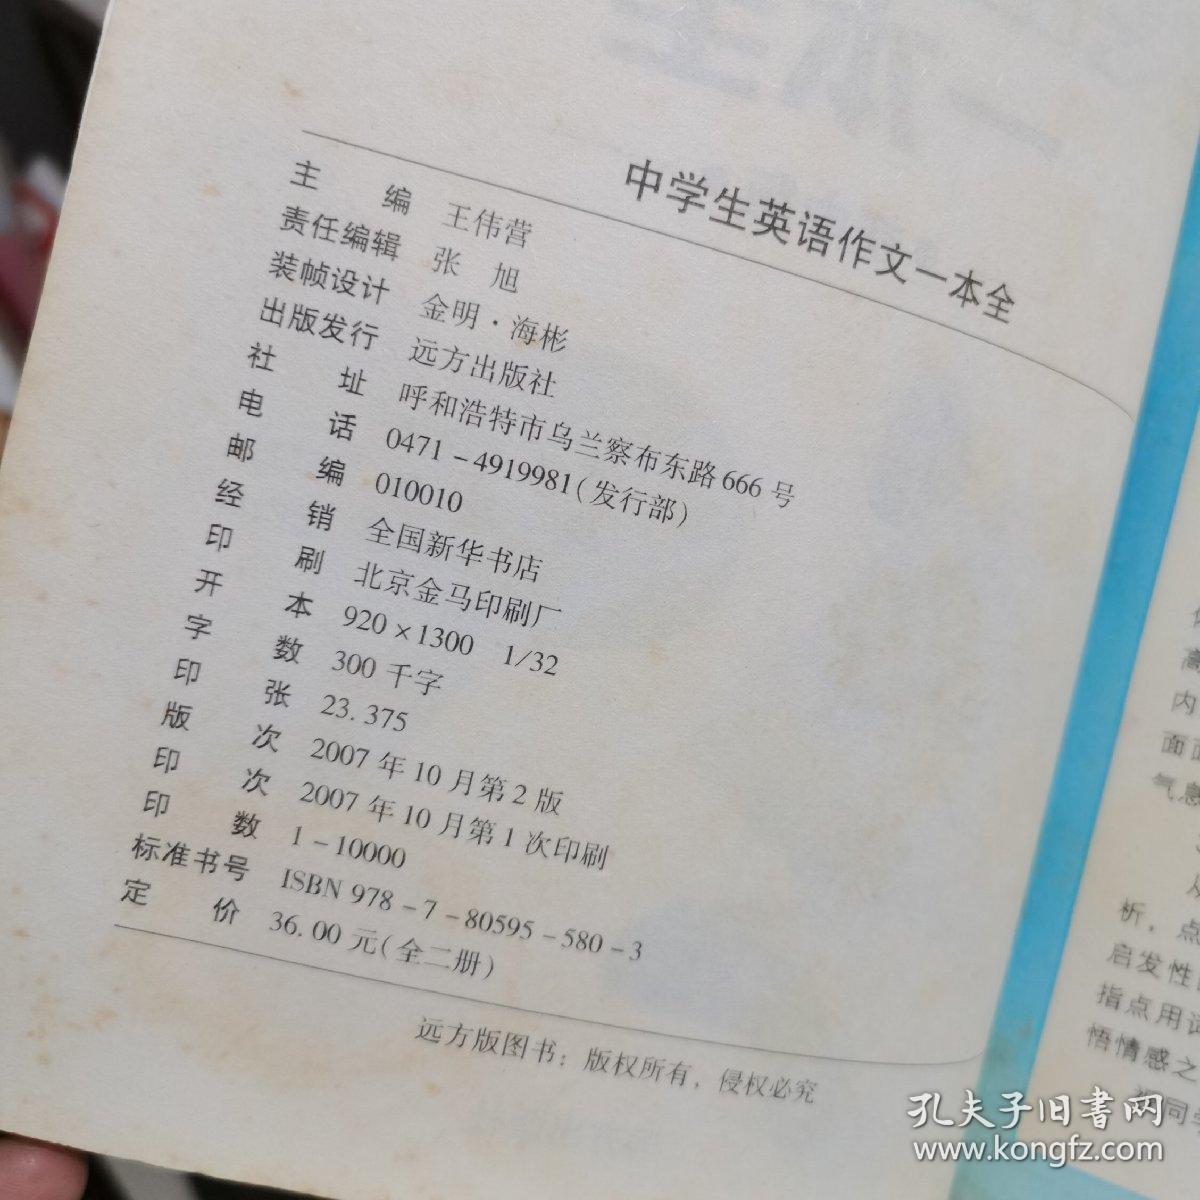 中学生英语作文一本全
主 编 王伟营
责任编辑 张 旭
装帧设计 金明·海彬
出版发行 远方出版社
社 址 呼和浩特市乌兰察布东路666号
电 话 0471-4919981(发行部)
邮 编 010010
经 销 全国新华书店
印 刷 北京金马印刷厂
开 本 920×1300 1/32
字 数 300千字
印 张 23.375
版 次 2007年10月第2版
印 次 2007年10月第1次印刷
印 数 1-10000
标准书号 ISBN 978-7-80595-580-3
定 价 36.00元(全二册)
远方版图书：版权所有，侵权必究
高
内
面面
气息
析，点
启发性
指点用词
悟情感之
同学
孔夫子旧书网
www.kongfz.com